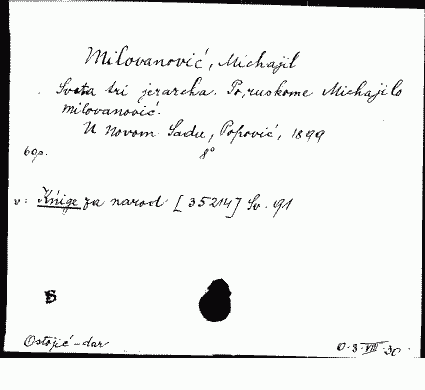 Milovanović, Michajil
Sveta tri jerarha. Po, ruskome Michajilo
milovanović.
U Novom Sadu, Popović, 1899
60p. 8°
v: Knige za narod [35214] Sv. 91
S
Ostojić-dar
0.3.VIII.30.